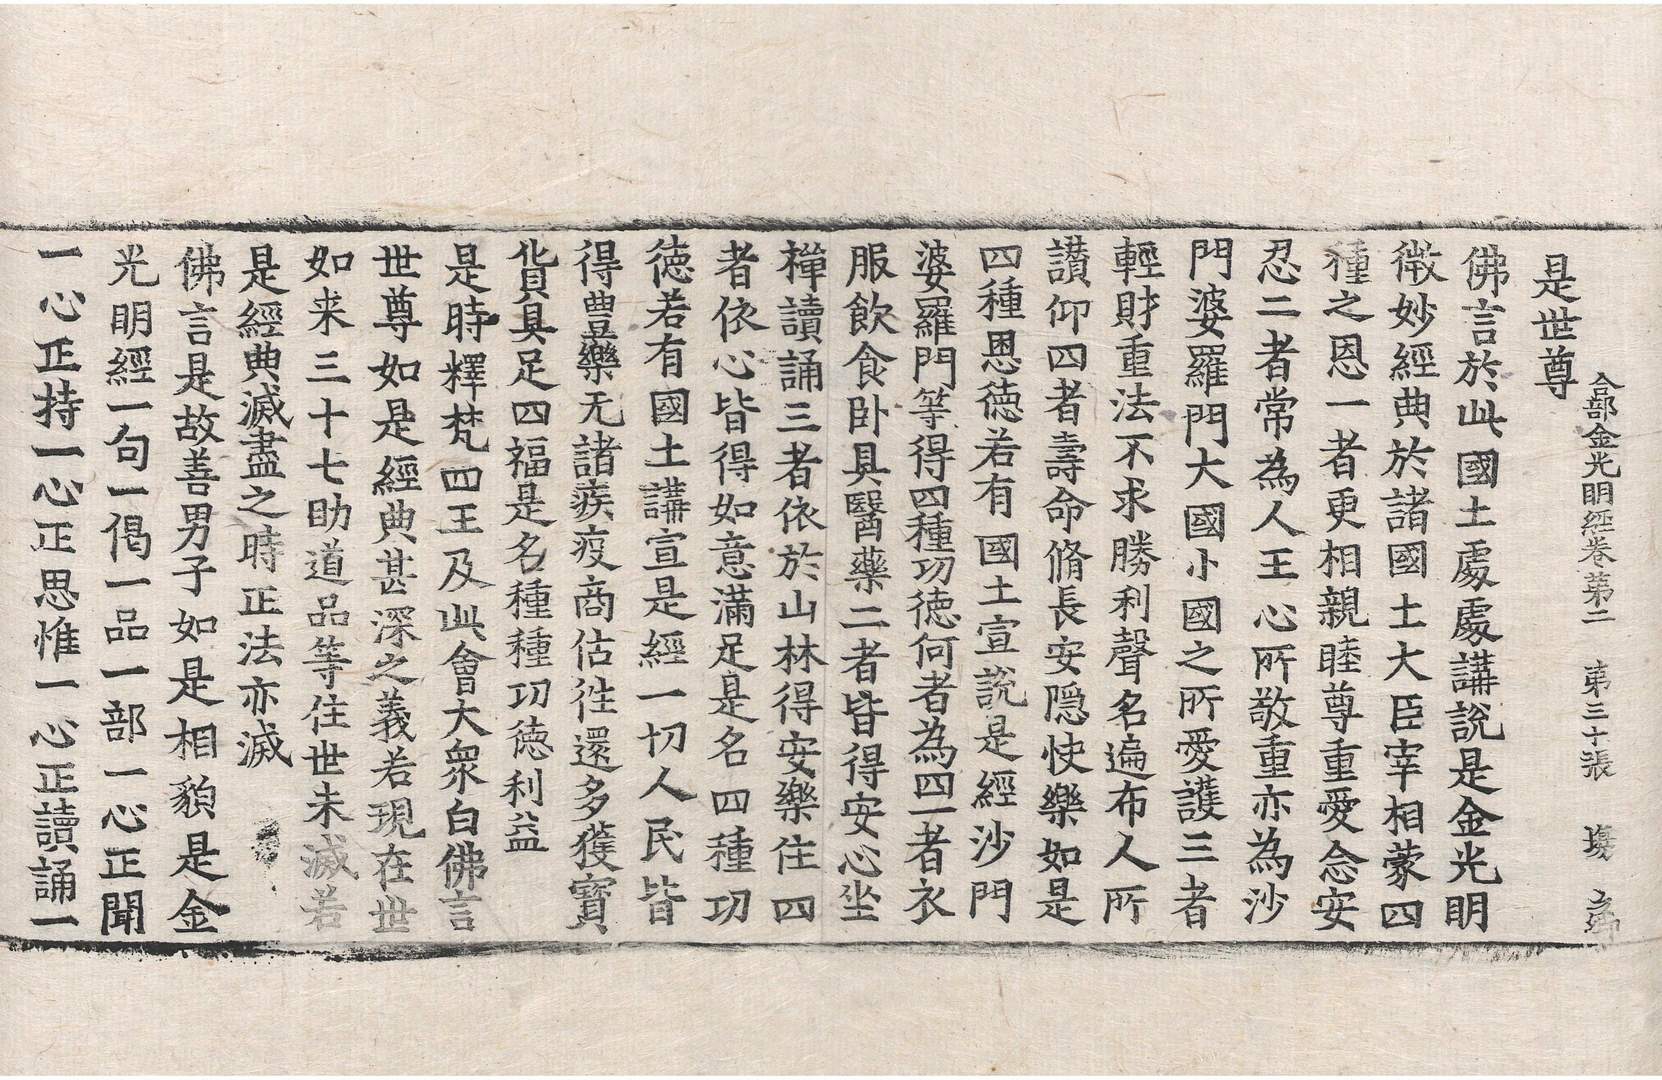 合部金光明經卷第二　第三十張
是世尊
佛言於此國土處處講說是金光明
微妙經典於諸國土大臣宰相蒙四
種之恩一者更相親睦尊重愛念安
忍二者常為人王心所敬重亦為沙
門婆羅門大國小國之所愛護三者
輕財重法不求勝利聲名遍布人所
讃仰四者壽命脩長安隱快樂如是
四種恩德若有國土宣說是經沙門
婆羅門等得四種功德何者為四一者衣
服飲食卧具醫藥二者皆得安心坐
禪讀誦三者依於山林得安樂住四
者依心皆得如意滿足是名四種功
德若有國土講宣是經一切人民皆
得豊藥无諸疾疫商估往還多獲寳
貨具足四福是名種種功德利益
是時釋梵四王及此會大衆白佛言
世尊如是經典甚深之義若現在世
如来三十七助道品等住世未滅若
是經典滅盡之時正法亦滅
佛言是故善男子如是相貌是金
光明經一句一偈一品一部一心正聞
一心正持一心正思惟一心正讀誦一